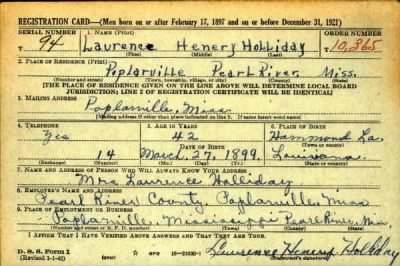 REGISTRATION CARD—(Men born on or after February 17, 1897 and on or before December 31, 1921)
SERIAL NUMBER 1. NAME (Print) ORDER NUMBER
94 Laurence Henery Holliday 10,365
2. PLACE OF RESIDENCE (Print)
Poplarville Pearl River Miss.
(Number and street) (Town, township, village, or city) (County) (State)
[THE PLACE OF RESIDENCE GIVEN ON THE LINE ABOVE WILL DETERMINE LOCAL BOARD
JURISDICTION; LINE 2 OF REGISTRATION CERTIFICATE WILL BE IDENTICAL]
3. MAILING ADDRESS
Poplarville, Miss.
[Mailing address if other than place indicated on line 2. If same insert word same]
4. TELEPHONE 5. AGE IN YEARS 6. PLACE OF BIRTH
Yes 42 Hammond La.
DATE OF BIRTH (Town or county)
14 March 27, 1899 Louisiana
(Exchange) (Number) (Mo.) (Day) (Yr.) (State or country)
7. NAME AND ADDRESS OF PERSON WHO WILL ALWAYS KNOW YOUR ADDRESS
Mrs Laurence Holliday
8. EMPLOYER'S NAME AND ADDRESS
Pearl River County, Poplarville, Miss
9. PLACE OF EMPLOYMENT OR BUSINESS
Poplarville, Mississippi Pearl River, Miss.
(Number and street or R. F. D. number) (Town) (County) (State)
I AFFIRM THAT I HAVE VERIFIED ABOVE ANSWERS AND THAT THEY ARE TRUE.
D. S. S. Form 1 Laurence Henery Holliday
(Revised 1-1-42) (over) GPO 16—21630 (Registrant's signature)